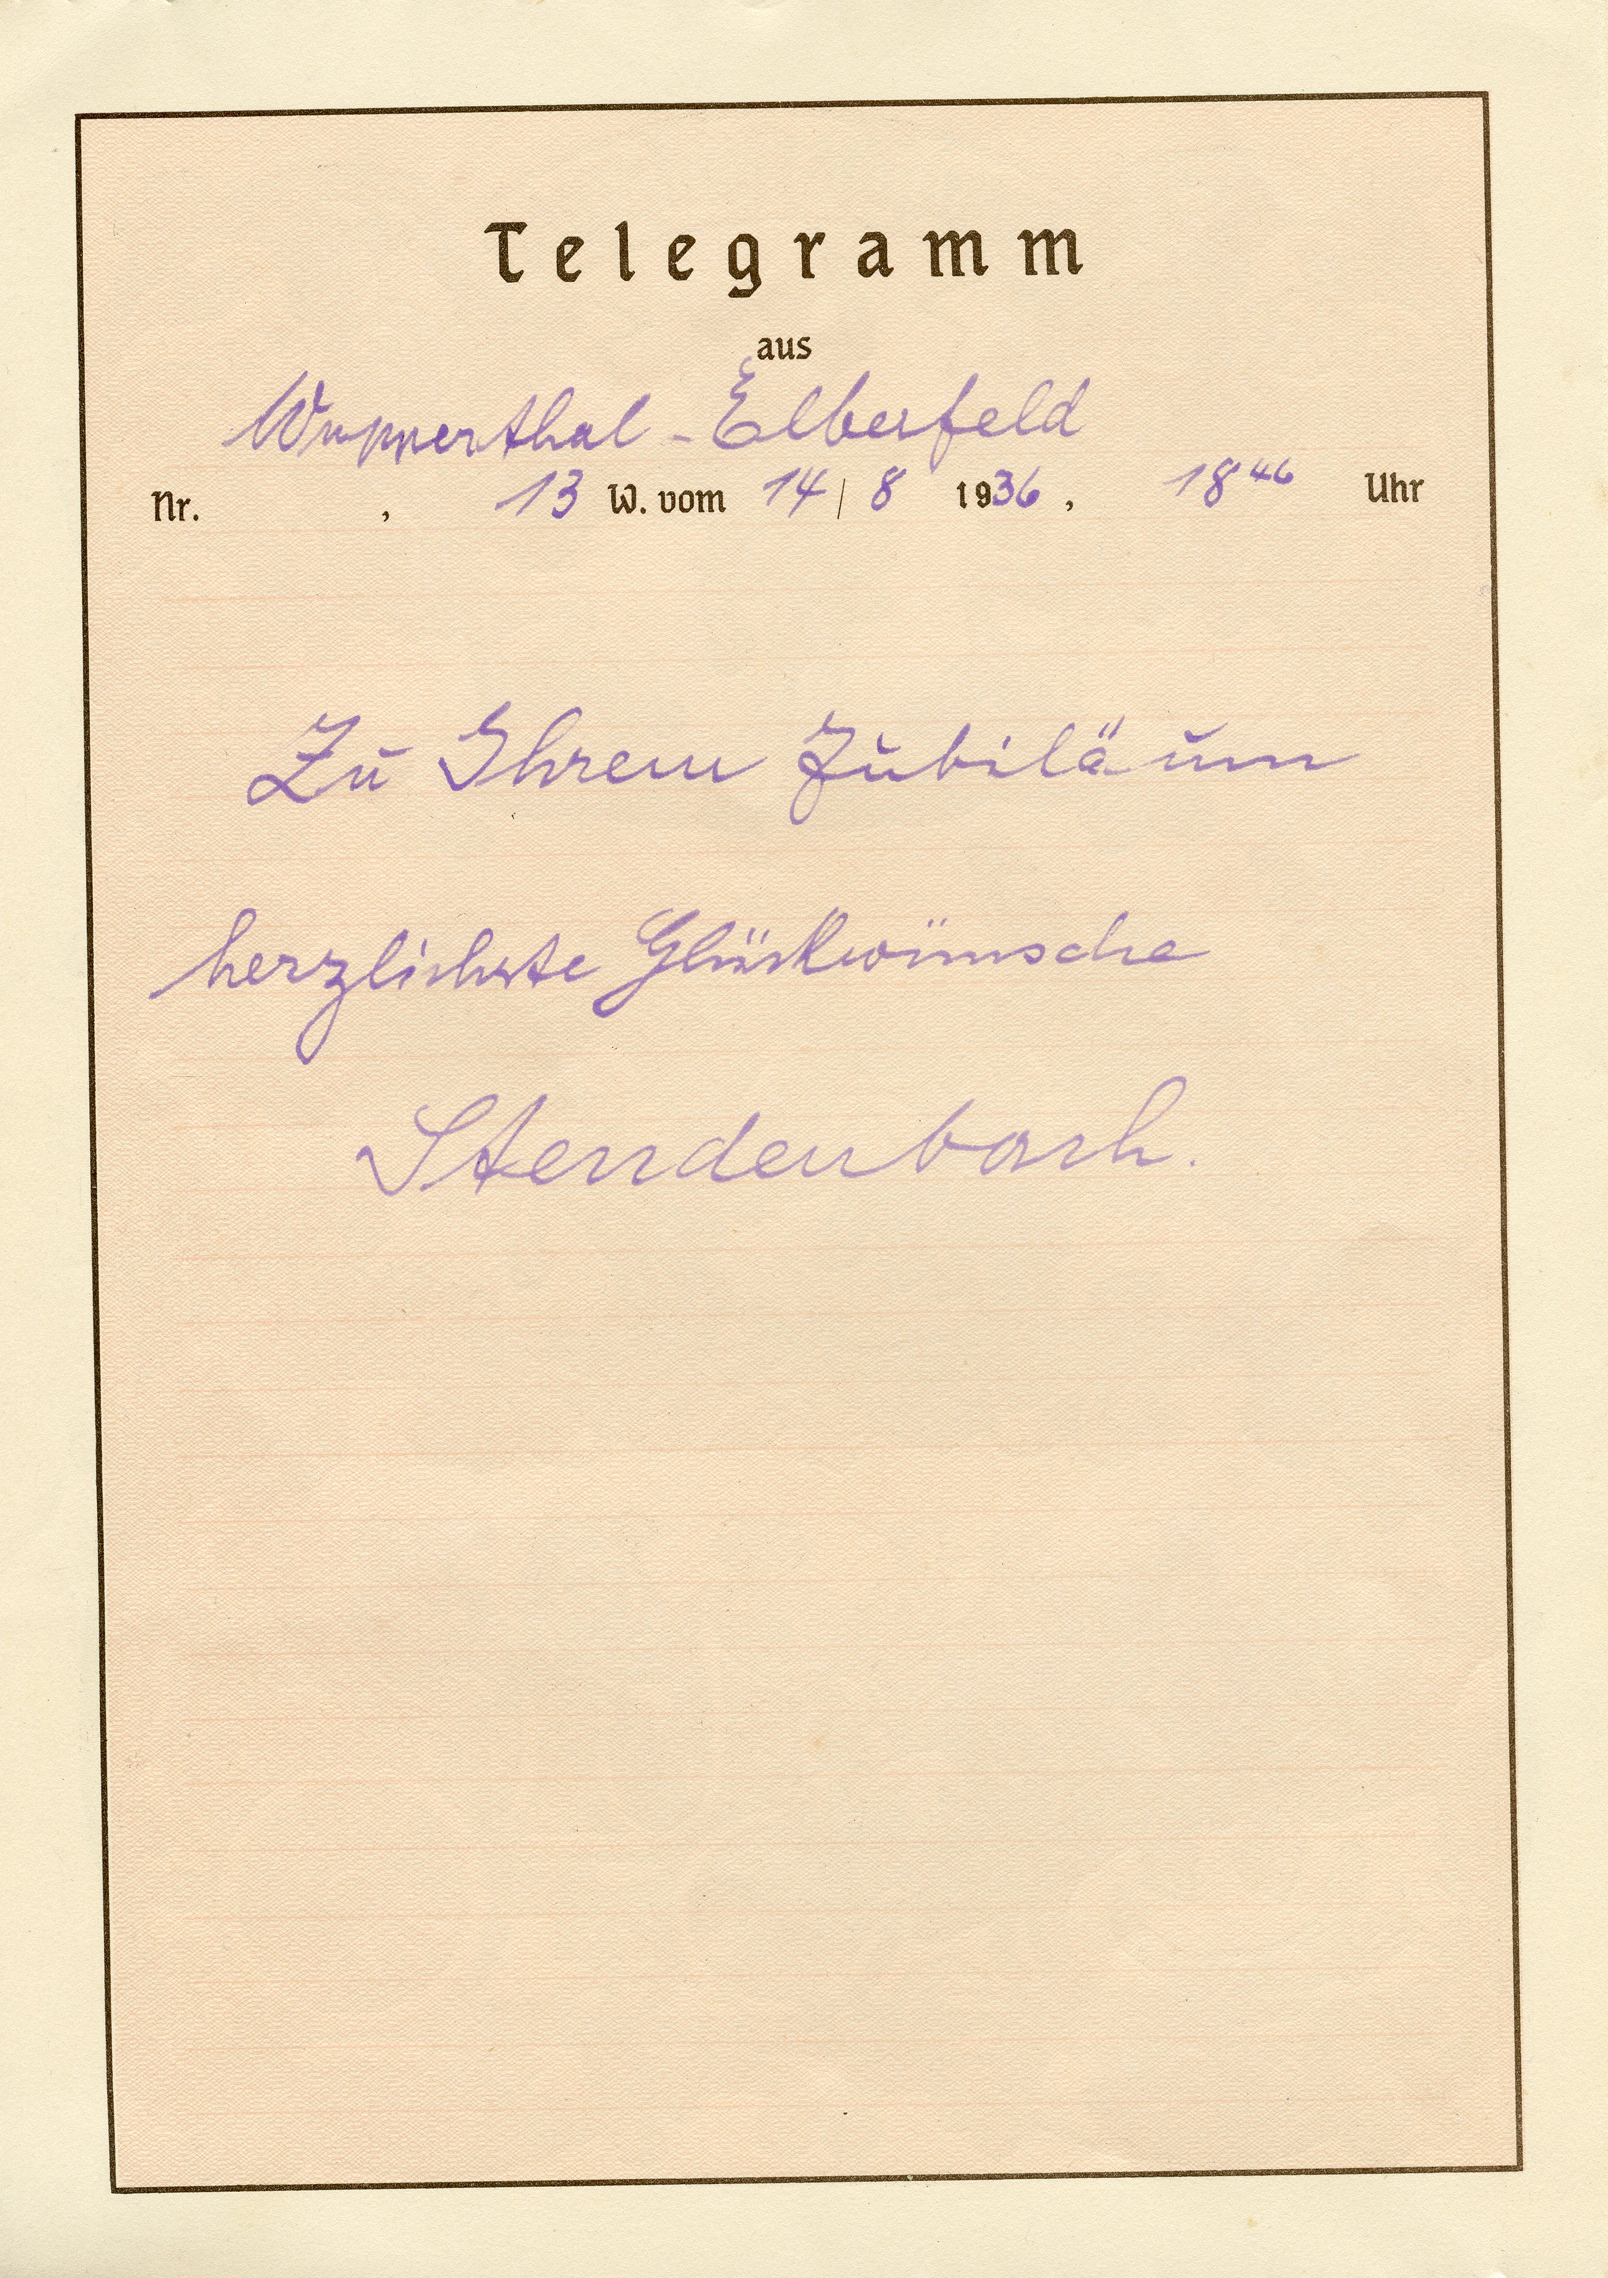 Telegramm
aus
Wupperthal - Elberfeld
Nr. , 13 W. vom 14 / 8 1936, 18 46 Uhr
Zu Ihrem Jubiläum
herzlichste Glückwünsche
Stendenbach.